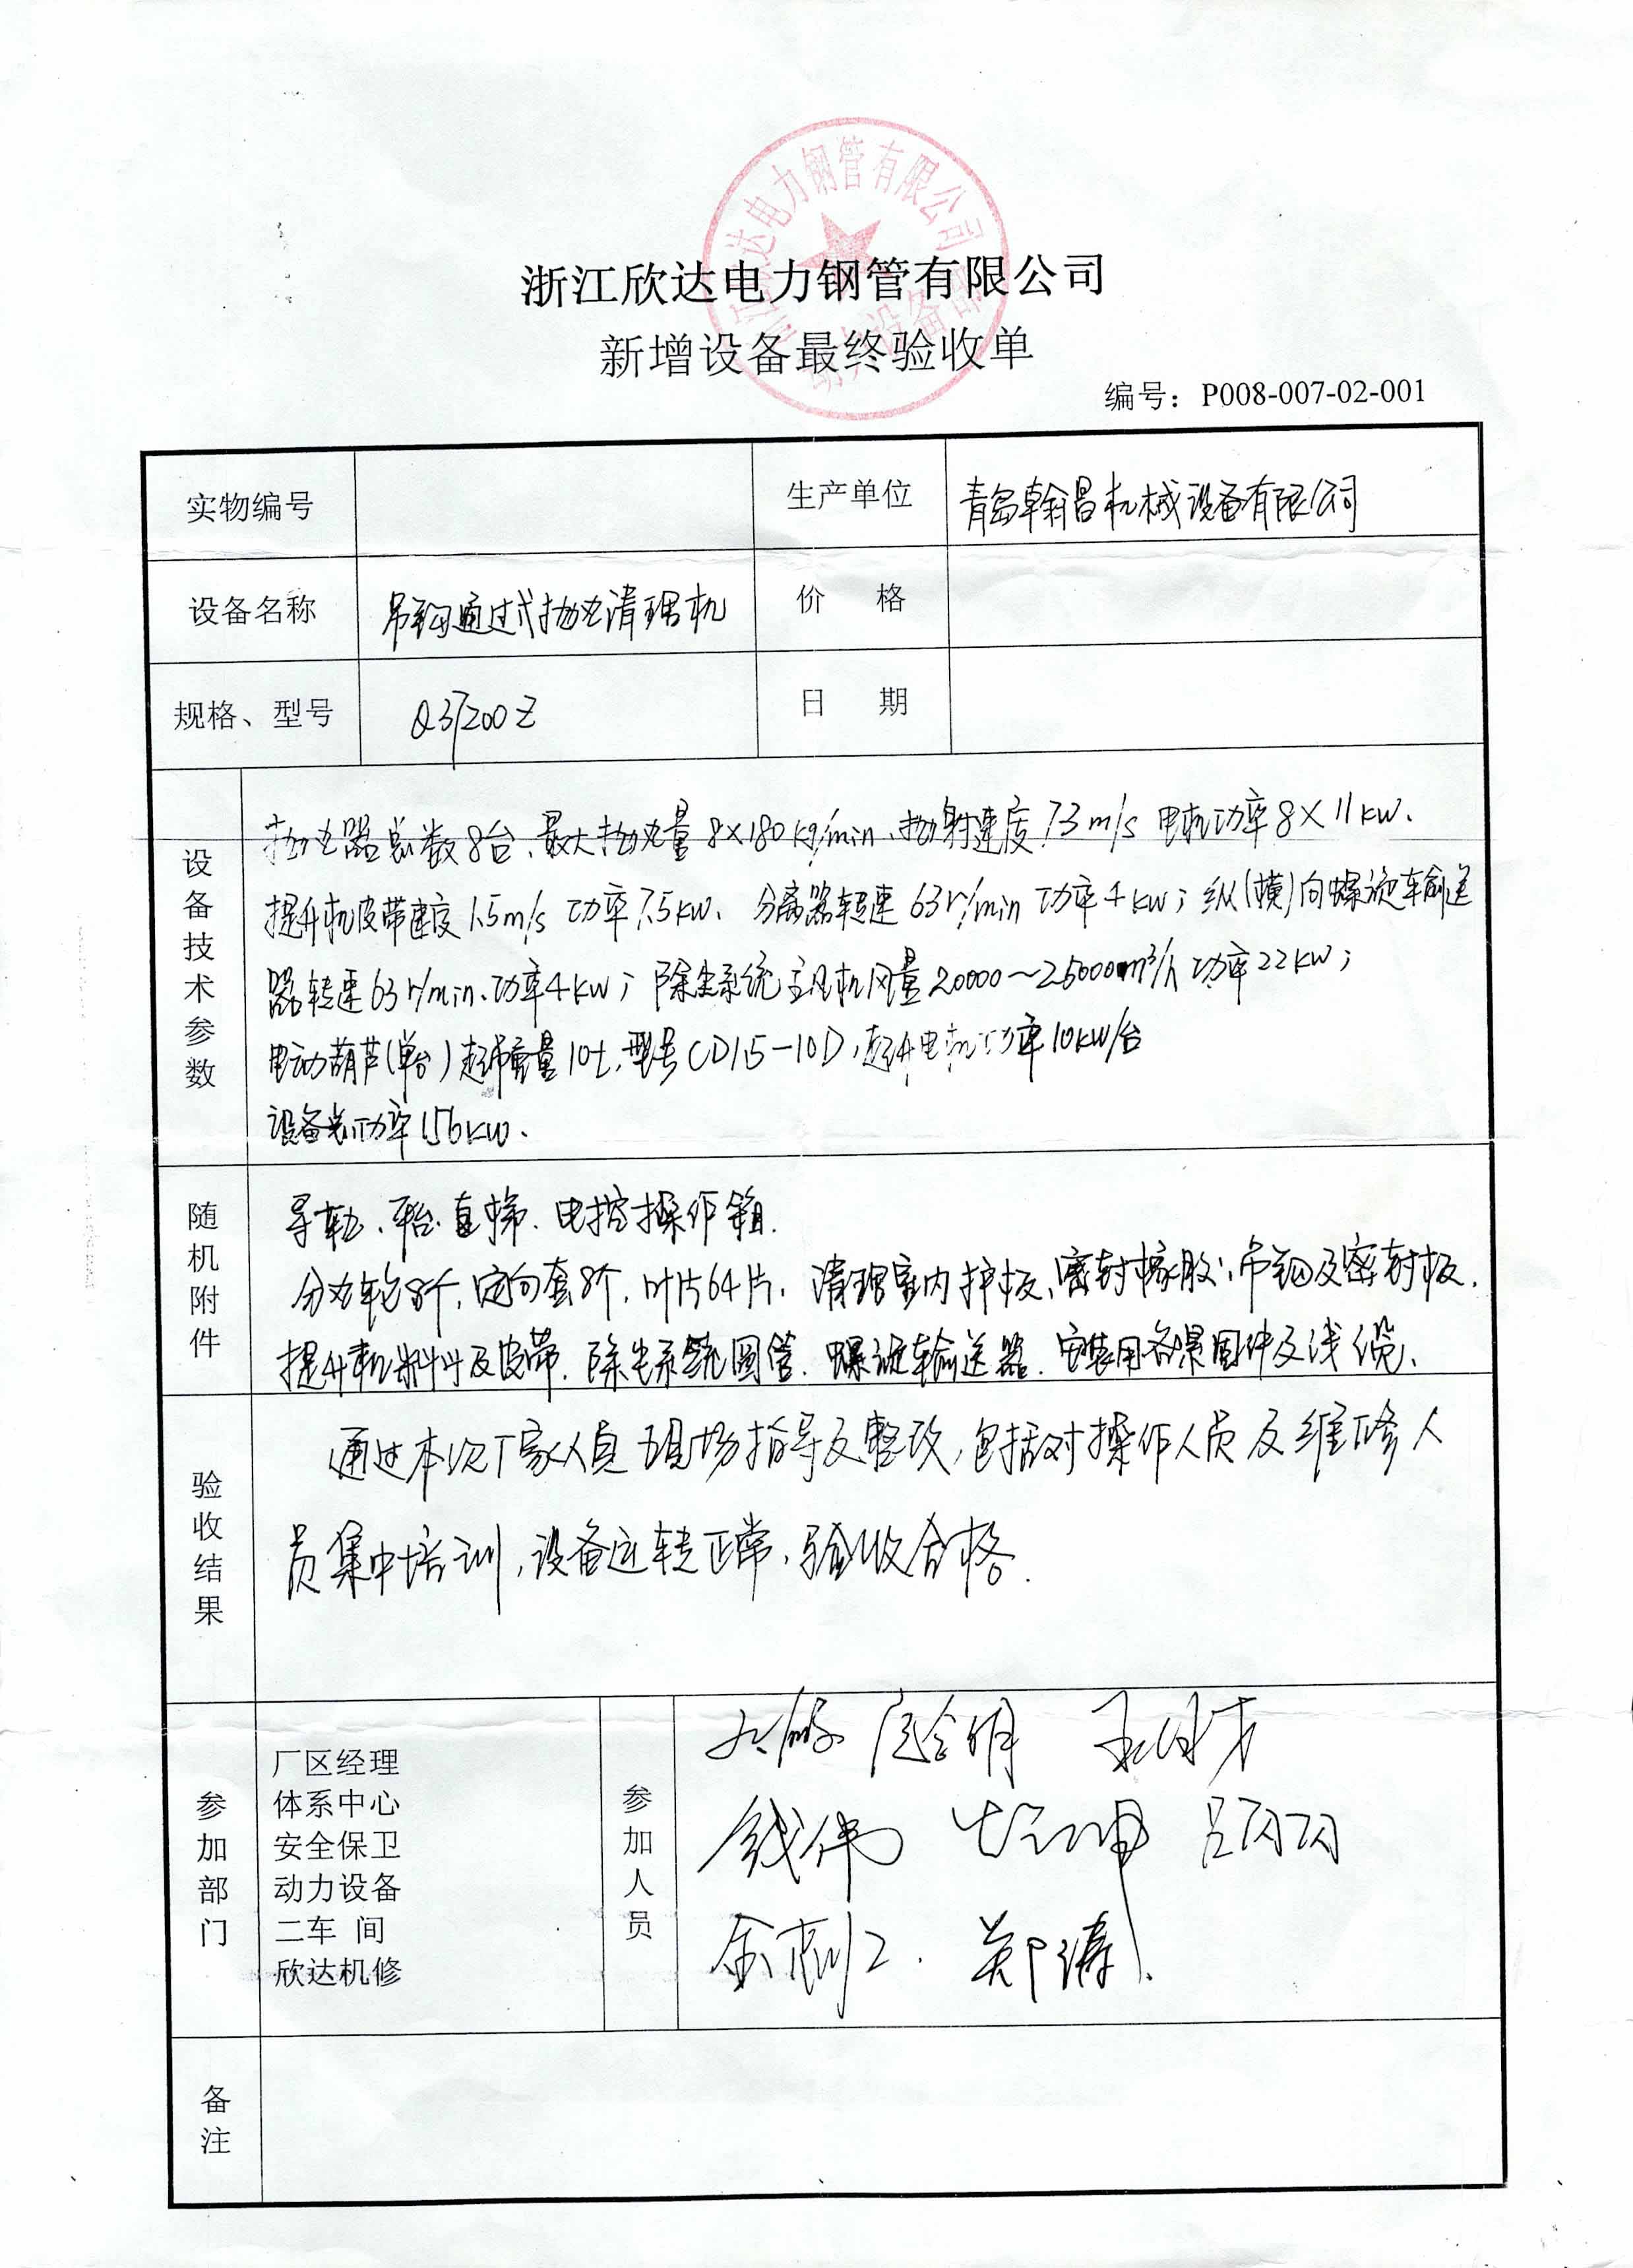 浙江欣达电力钢管有限公司
新增设备最终验收单
编号：P008-007-02-001
实物编号
生产单位 青岛翰昌机械设备有限公司
设备名称 吊钩通过式抛丸清理机 价 格
规格、型号 Q37200Z 日 期
设备技术参数
抛丸器总数8台、最大抛丸量8×180kg/min、抛射速度73m/s 电机功率8×11kw、
提升机皮带速度1.5m/s 功率7.5kw、分离器转速63r/min 功率4kw；纵(横)向螺旋输送
器转速63r/min、功率4kw；除尘系统主风机风量20000～25000m³/h 功率22kw；
电动葫芦(单台)起吊重量10t，型号CD15-10D，起升电机功率10kw/台
设备总功率156kw、
随机附件
导轨、平台、直梯、电控操作箱.
分丸轮8个，定向套8个，叶片64片，清理室内护板、密封橡胶、吊钩及密封板，
提升机料斗及皮带、除尘系统圆管、螺旋输送器、安装用各紧固件及线缆、
验收结果
通过本次厂家人员现场指导及整改，包括对操作人员及维修人
员集中培训，设备运转正常，验收合格.
参加部门
厂区经理
体系中心
安全保卫
动力设备
二车 间
欣达机修
参加人员
钱伟 吕闪闪
郑涛
备注